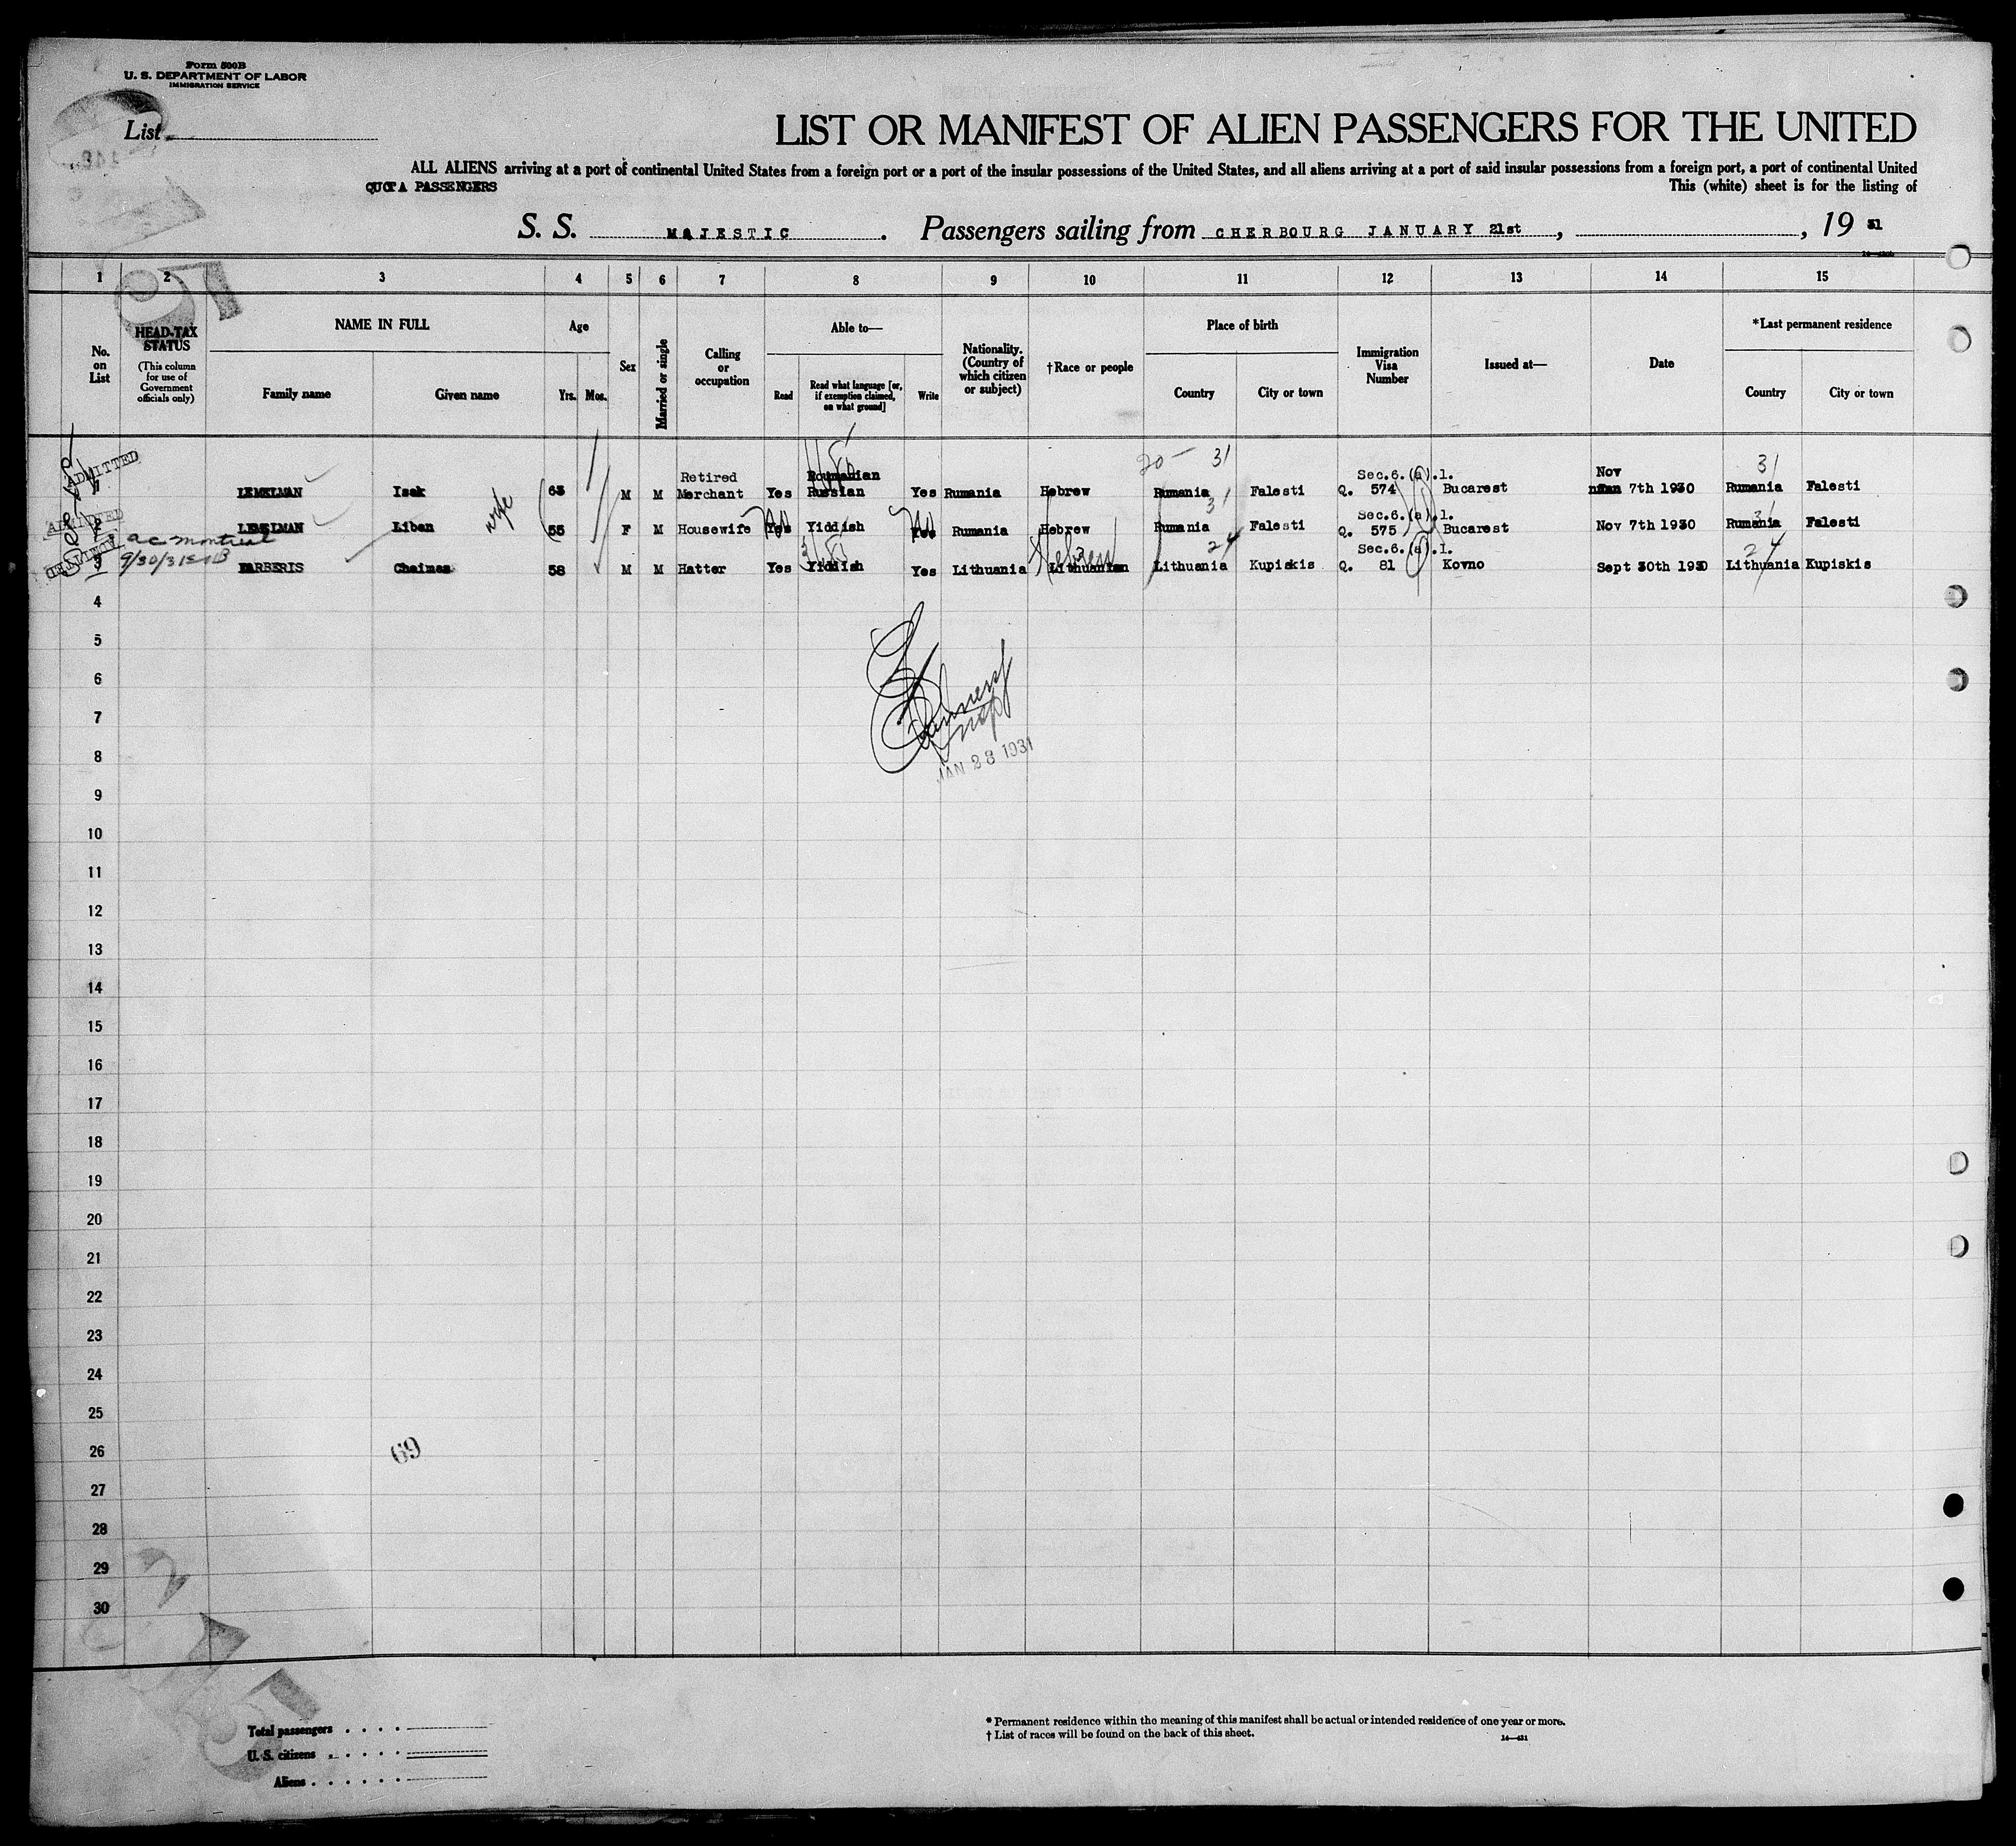 Form 500B
U. S. DEPARTMENT OF LABOR
IMMIGRATION SERVICE
List
LIST OR MANIFEST OF ALIEN PASSENGERS FOR THE UNITED
ALL ALIENS arriving at a port of continental United States from a foreign port or a port of the insular possessions of the United States, and all aliens arriving at a port of said insular possessions from a foreign port, a port of continental United
QUOTA PASSENGERS This (white) sheet is for the listing of
S. S. MAJESTIC. Passengers sailing from CHERBOURG JANUARY 21st, , 19 31
1 2 3 4 5 6 7 8 9 10 11 12 13 14 15
No. on List
HEAD-TAX STATUS
(This column for use of Government officials only)
NAME IN FULL
Family name Given name
Age
Yrs. Mos.
Sex
Married or single
Calling or occupation
Able to—
Read Read what language [or, if exemption claimed, on what ground] Write
Nationality. (Country of which citizen or subject)
†Race or people
Place of birth
Country City or town
Immigration Visa Number
Issued at—
Date
*Last permanent residence
Country City or town
20 — 31 31
ADMITTED
Retired Roumanian Sec.6.(a).1. Nov
1 LEMELMAN Isak 63 M M Merchant Yes Russian Yes Rumania Hebrew Rumania Falesti Q. 574 Bucarest 7th 1930 Rumania Falesti
wife
ADMITTED
31 Sec.6.(a).1. 31
2 LEMELMAN Liban 55 F M Housewife Yes Yiddish Yes Rumania Hebrew Rumania Falesti Q. 575 Bucarest Nov 7th 1930 Rumania Falesti
No No
ac montreal
9/30/31
Hebrew 24 Sec.6.(a).1. 24
3 FARBERIS Chaimas 58 M M Hatter Yes Yiddish Yes Lithuania Lithuanian Lithuania Kupiskis Q. 81 Kovno Sept 30th 1930 Lithuania Kupiskis
4
5
6
7
8
JAN 28 1931
9
10
11
12
13
14
15
16
17
18
19
20
21
22
23
24
25
26
69
27
28
29
30
Total passengers
U. S. citizens
Aliens
* Permanent residence within the meaning of this manifest shall be actual or intended residence of one year or more.
† List of races will be found on the back of this sheet.
14—431